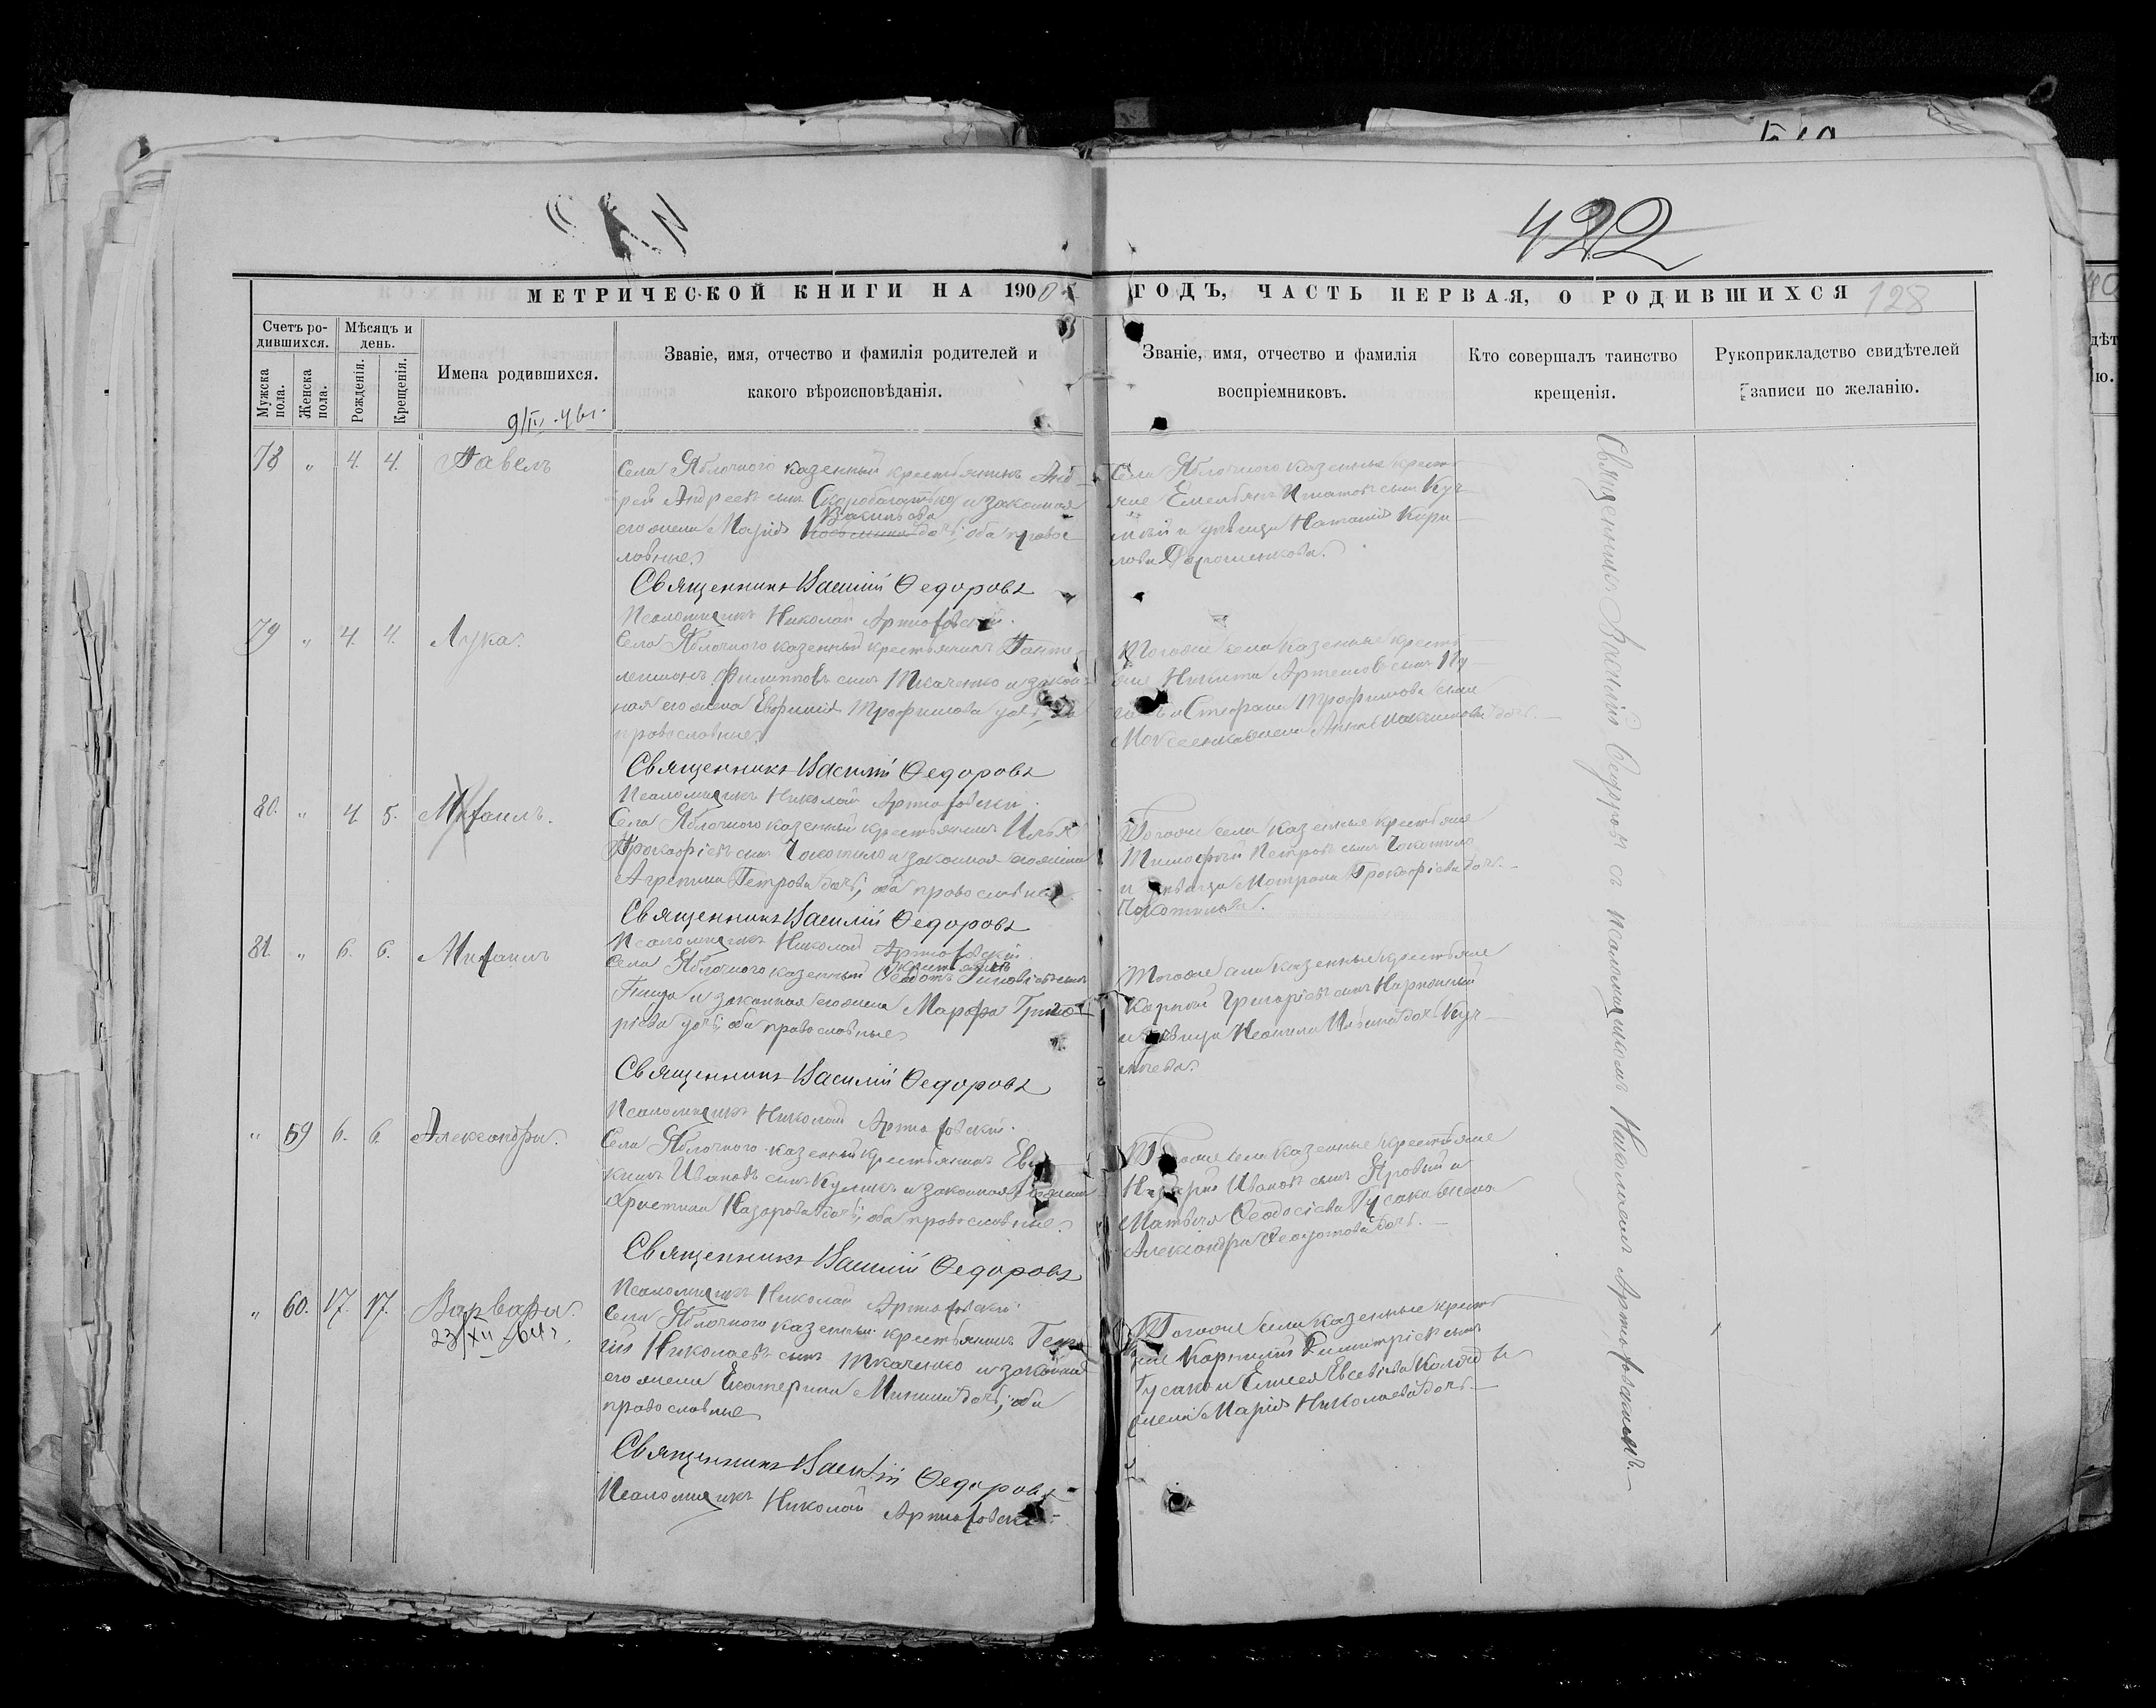 422
МЕТРИЧЕСКОЙ КНИГИ НА 1900 ГОДЪ, ЧАСТЬ ПЕРВАЯ, О РОДИВШИХСЯ
128
Счетъ ро-
дившихся.
Мужска пола.
Женска пола.
Мѣсяцъ и
день.
Рожденія.
Крещенія.
Имена родившихся.
Званіе, имя, отчество и фамилія родителей и
какого вѣроисповѣданія.
Званіе, имя, отчество и фамилія
воспріемниковъ.
Кто совершалъ таинство
крещенія.
Рукоприкладство свидѣтелей
записи по желанію.
9/IV-46г.
78 " 4. 4. Павелъ
Села Яблочного казенный крестьянинъ Анд-
рей Андреевъ сынъ Скоробагатько и законная
его жена Марія дочь, оба правос-
лавные
Священникъ Василій Ѳедоровъ
Псаломщикъ Николай Артюховскій.
Села Яблочного казенные крестья-
яне Емельянъ Игнатовъ сынъ Куч-
и дѣвица Наталія Кири-
лова Дорошенкова.
79 " 4. 4. Лука.
Села Яблочного казенный крестьянинъ Панте-
леимонъ Филипповъ сынъ Ткаченко и закон-
ная его жена Евфимія Трофимова дочь,
православные
Священникъ Василій Ѳедоровъ
Псаломщикъ Николай Артюховскій.
Тогоже села казенные кресть-
яне Никита Артемовъ сынъ
и Стефана Трофимова сына
жена Анна Максимова дочь.
80. " 4. 5. Михаилъ.
Села Яблочного казенный крестьянинъ Илья
Прокофіевъ сынъ Чокотило и законная его жена
Агрепина Петрова дочь, оба православные
Священникъ Василій Ѳедоровъ
Псаломщикъ Николай Артюховскій.
Тогоже села казенные крестьяне
Тимофѣй Петровъ сынъ Чокотило
и дѣвица Матрона Прокофіева дочь
81. " 6. 6. Михаилъ
Села Яблочного казенный крестьянинъ
и законная его жена Марфа Григо-
рієва дочь, оба православные
Священникъ Василій Ѳедоровъ
Псаломщикъ Николай Артюховскій.
Тогоже села казенные крестьяне
Корнилій Григоріевъ сынъ
и дѣвица Неонила Ильина дочь Куч-
" 59 6. 6. Александра.
Села Яблочного казенный крестьянинъ
Ивановъ сынъ Куликъ и законная его жена
Христина Назарова дочь, оба православные.
Священникъ Василій Ѳедоровъ
Псаломщикъ Николай Артюховскій.
Тогоже села казенные крестьяне
Назарій Ивановъ сынъ Яровый и
Матвея Ѳеодосіева Гусака жена
Александра Ѳедотова дочь.
" 60. 17. 17. Варвара.
23/XII-64г.
Села Яблочного казенный крестьянинъ Геор-
гій Николаевъ сынъ Ткаченко и законная
его жена Екатерина Минина дочь, оба
православные
Священникъ Василій Ѳедоровъ
Псаломщикъ Николай Артюховскій.
Тогоже села казенные кресть-
яне Корнилій Димитріевъ сынъ
Гусакъ и Елисея Евсевіева
жена Марія Николаева дочь.
Священникъ Василій Ѳедоровъ съ псаломщикомъ Николаемъ Артюховскимъ